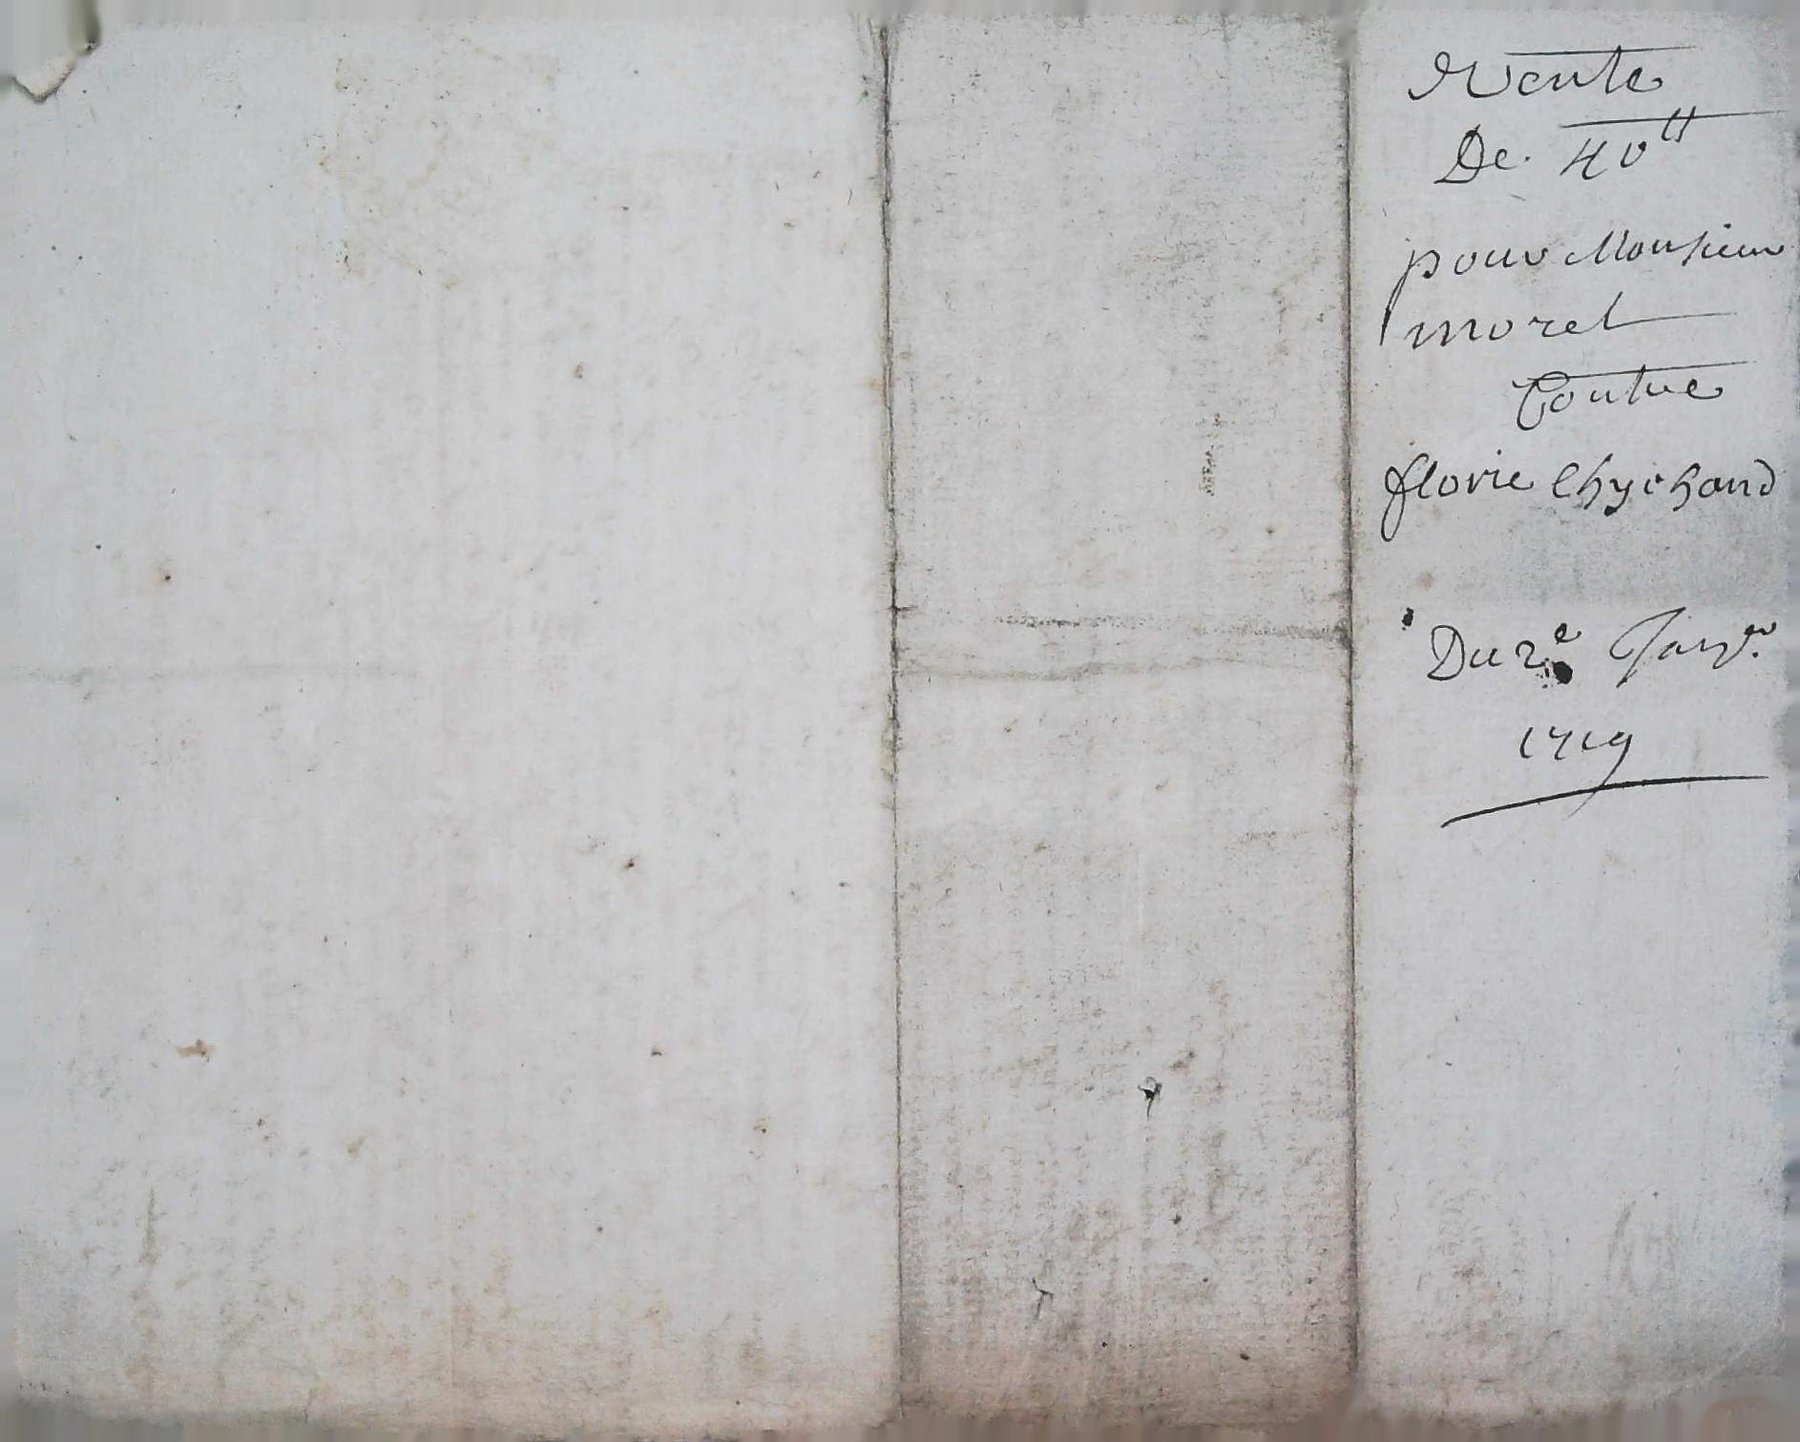 Vente
De 40 ₶
pour Monsieur
morel
Contre
florie Chychand
Du 2e Janver
1719